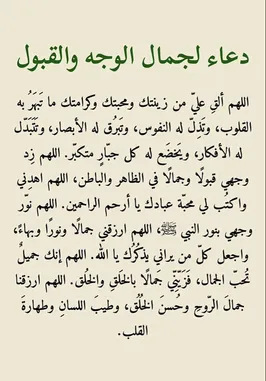 دعاء لجمال الوجه والقبول
اللهم ألقِ عليّ من زينتك ومحبتك وكرامتك ما تَبهَرُ به
القلوب، وتَذِلّ له النفوس، وتَبرُق له الأبصار، وتَتَبَدّل
له الأفكار، ويَخضَع له كل جبّارٍ متكبّر. اللهم زِد
وجهي قبولًا وجمالًا في الظاهر والباطن، اللهم اهدِني
واكتُب لي محبّة عبادك يا أرحم الراحمين. اللهم نوّر
وجهي بنور النبي ﷺ، اللهم ارزقني جمالًا ونورًا وبهاءً،
واجعل كلّ من يراني يذكُرُك يا الله. اللهم إنك جميلٌ
تُحبّ الجمال، فَزَيِّنّي جَمالًا بالخَلقِ والخُلق. اللهم ارزقنا
جمالَ الرّوحِ وحُسنَ الخُلُق، وطيبَ اللسانِ وطهارةَ
القلب.